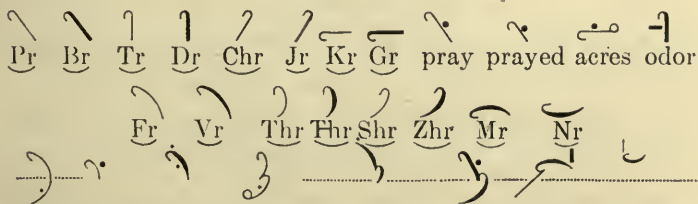 Pr Br Tr Dr Chr Jr Kr Gr pray prayed acres odor
Fr Vr Thr Thr Shr Zhr Mr Nr